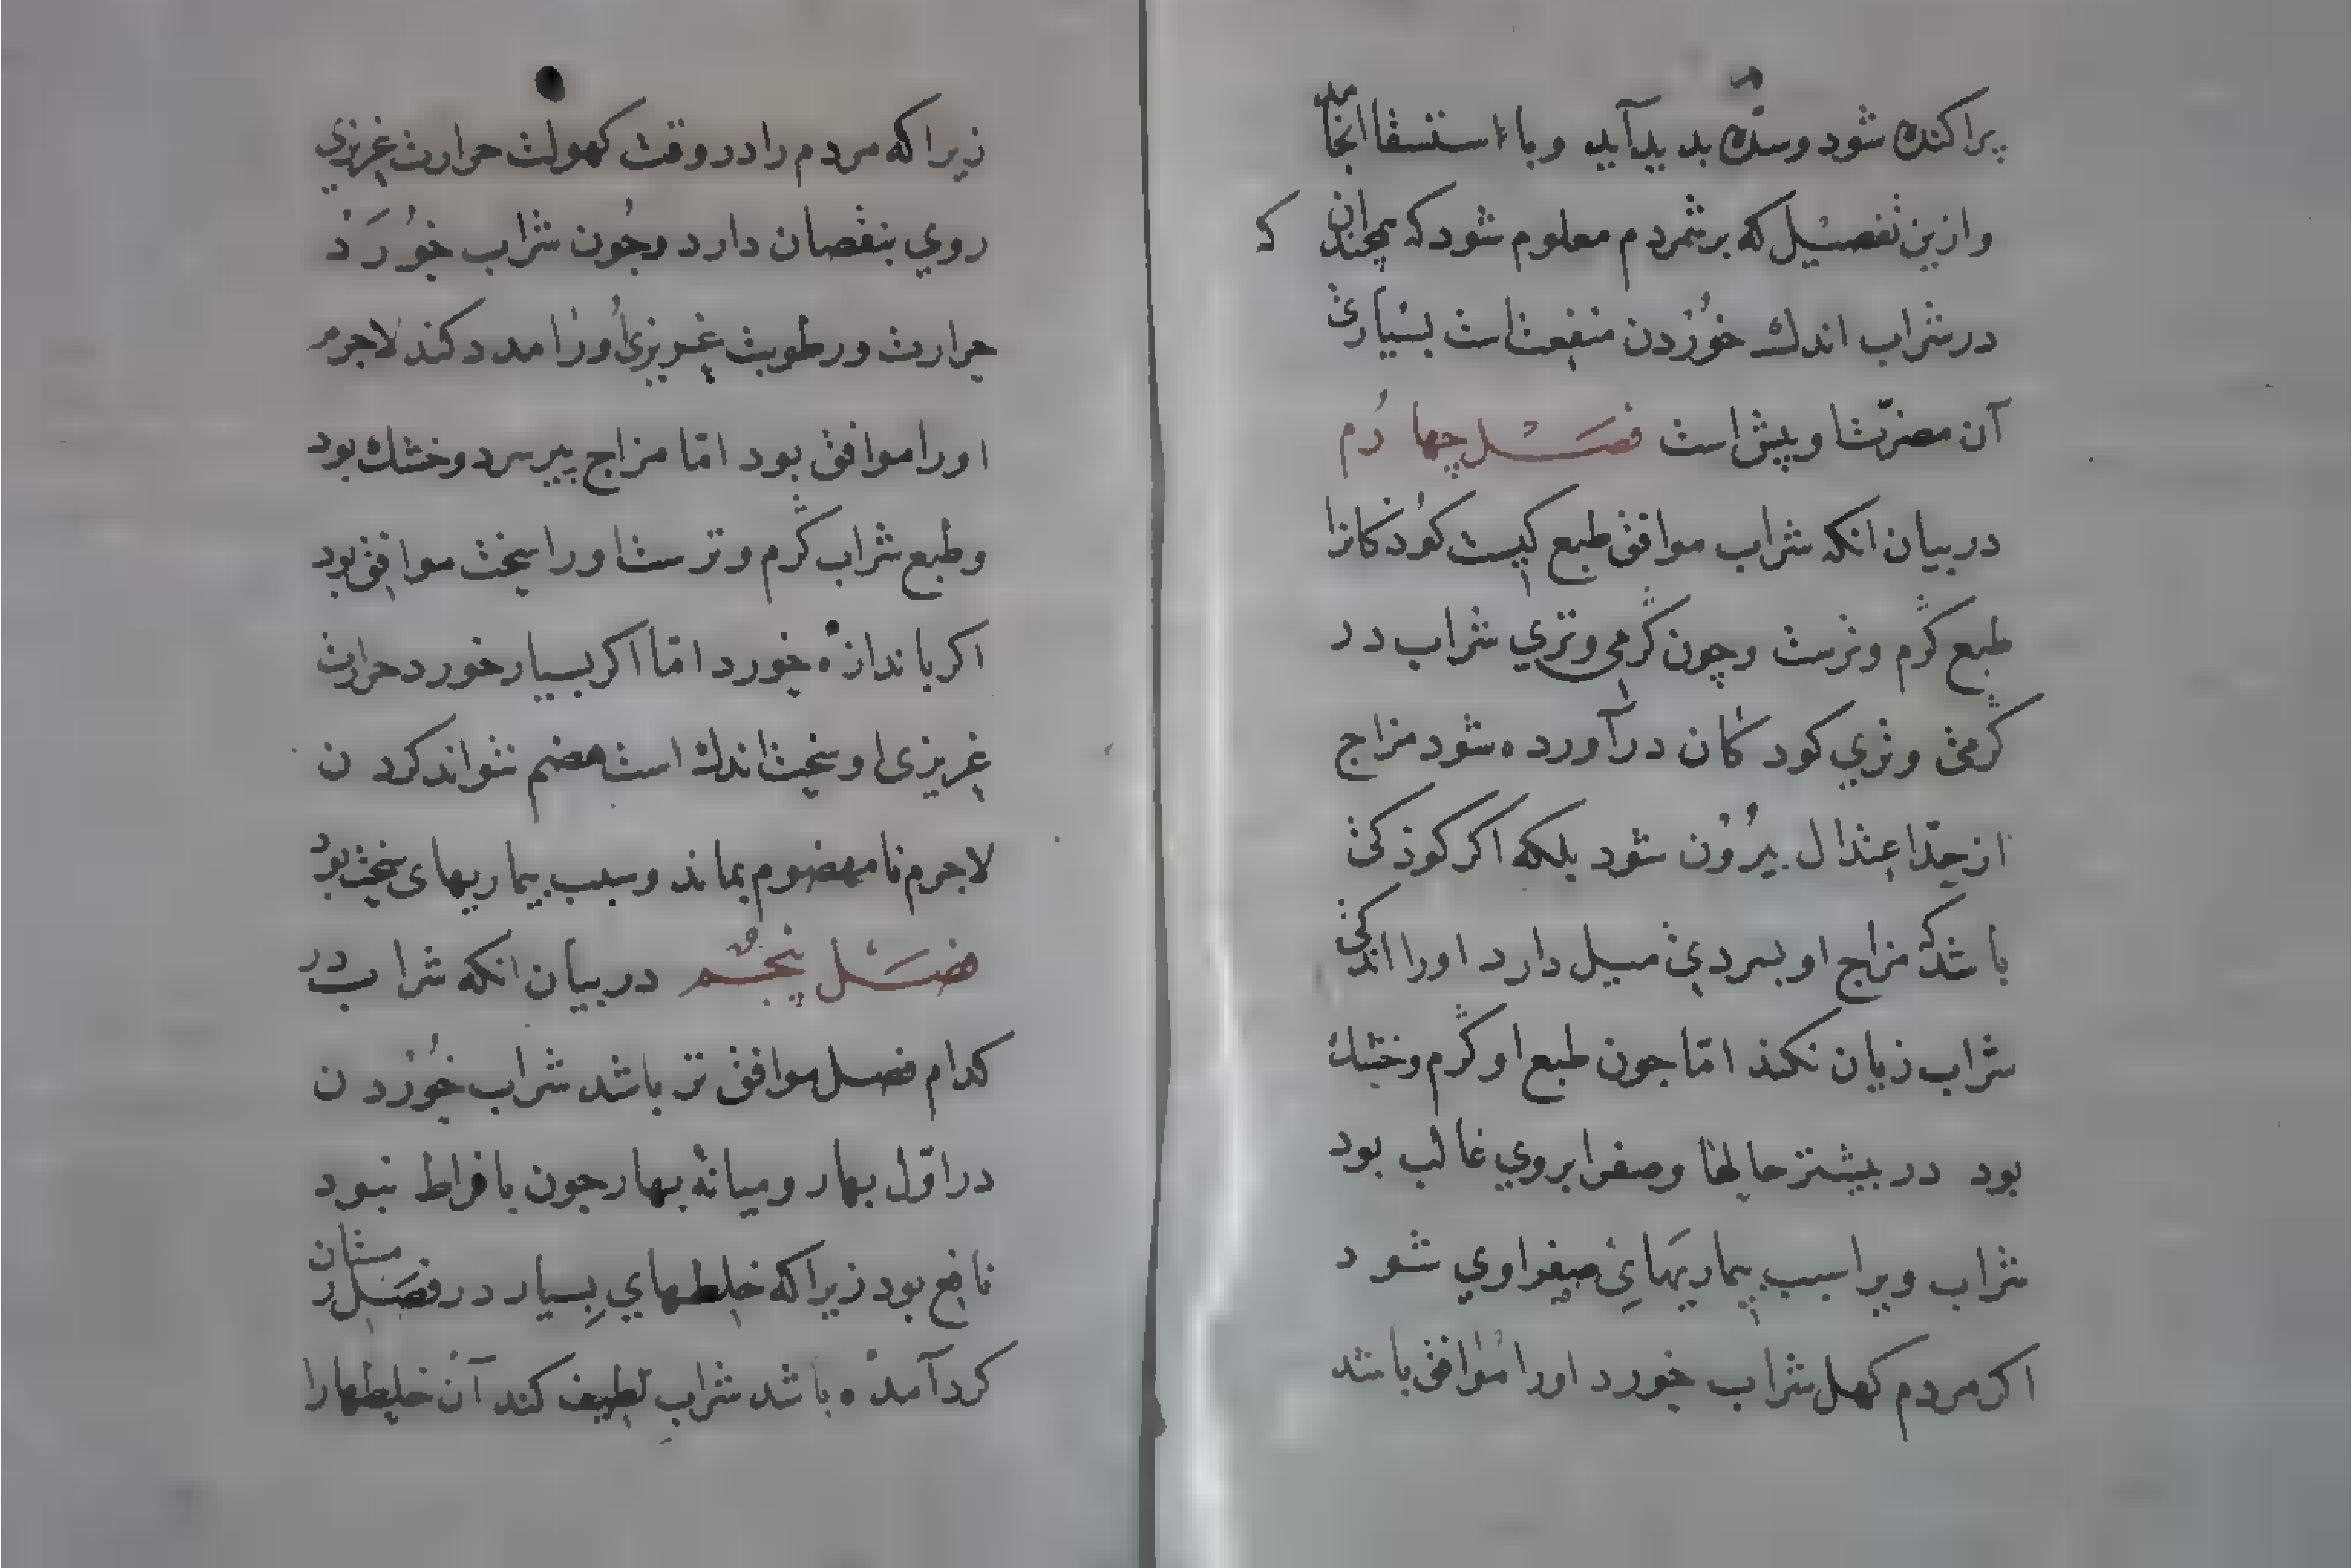 پراکنده شود وسدّه بدید آید وبا استسقا انجامد
وازین تفصیل که برشمردم معلوم شود که چندان که
در شراب اندک خوردن منفعت است بسیاری
آن مضرّتها وپیش است فصل چهارم
در بیان انکه شراب موافق طبع کیست کوذکانرا
طبع کرم وترست وچون کرمی وتری شراب در
کرمی وتری کودکان درآورده شود مزاج
از حدّ اعتدال بیرون شود بلکه اکر کوذکی
باشد که مزاج او بسردی میل دارد اورا اندکی
شراب زیان نکند امّا جون طبع او کرم وخشک
بود در بیشتر حالها وصفرا بروی غالب بود
شراب ویرا سبب بیماریهای صفراوی شود
اکر مردم کهل شراب خورد اورا موافق باشد
زیرا که مردم را در وقت کهولت حرارت غریزی
روی بنقصان دارد وجون شراب خورد
حرارت ورطوبت غریزی اورا مدد کند لاجرم
اورا موافق بود امّا مزاج پیر سرد وخشک بود
وطبع شراب کرم وترست اورا سخت موافق بود
اکر باندازه خورد امّا اکر بسیار خورد حرارت
غریزی او سخت اندک است هضم نتواند کردن
لاجرم نامهضوم بماند وسبب بیماریهای سخت بود
فصل پنجم در بیان انکه شراب در
کدام فصل موافق تر باشد شراب خوردن
در اوّل بهار ومیانه بهار جون بافراط نبود
نافع بود زیرا که خلطهای بسیار در فصل زمستان
کرد آمده باشد شراب لطیف کند آن خلطهارا